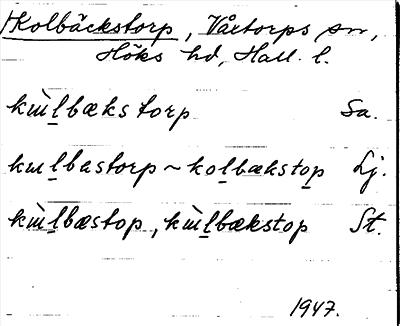 Kolbäckstorp, Våxtorps sn,
Höks hd, Hall. l.
kɯ̀l̲bæks torp Sa.
kɯl̲bastorp ~ kol̲bækstop̲ Lj.
kɯ̀l̲bæstop, kɯ̀l̲bækstop St.
1947.